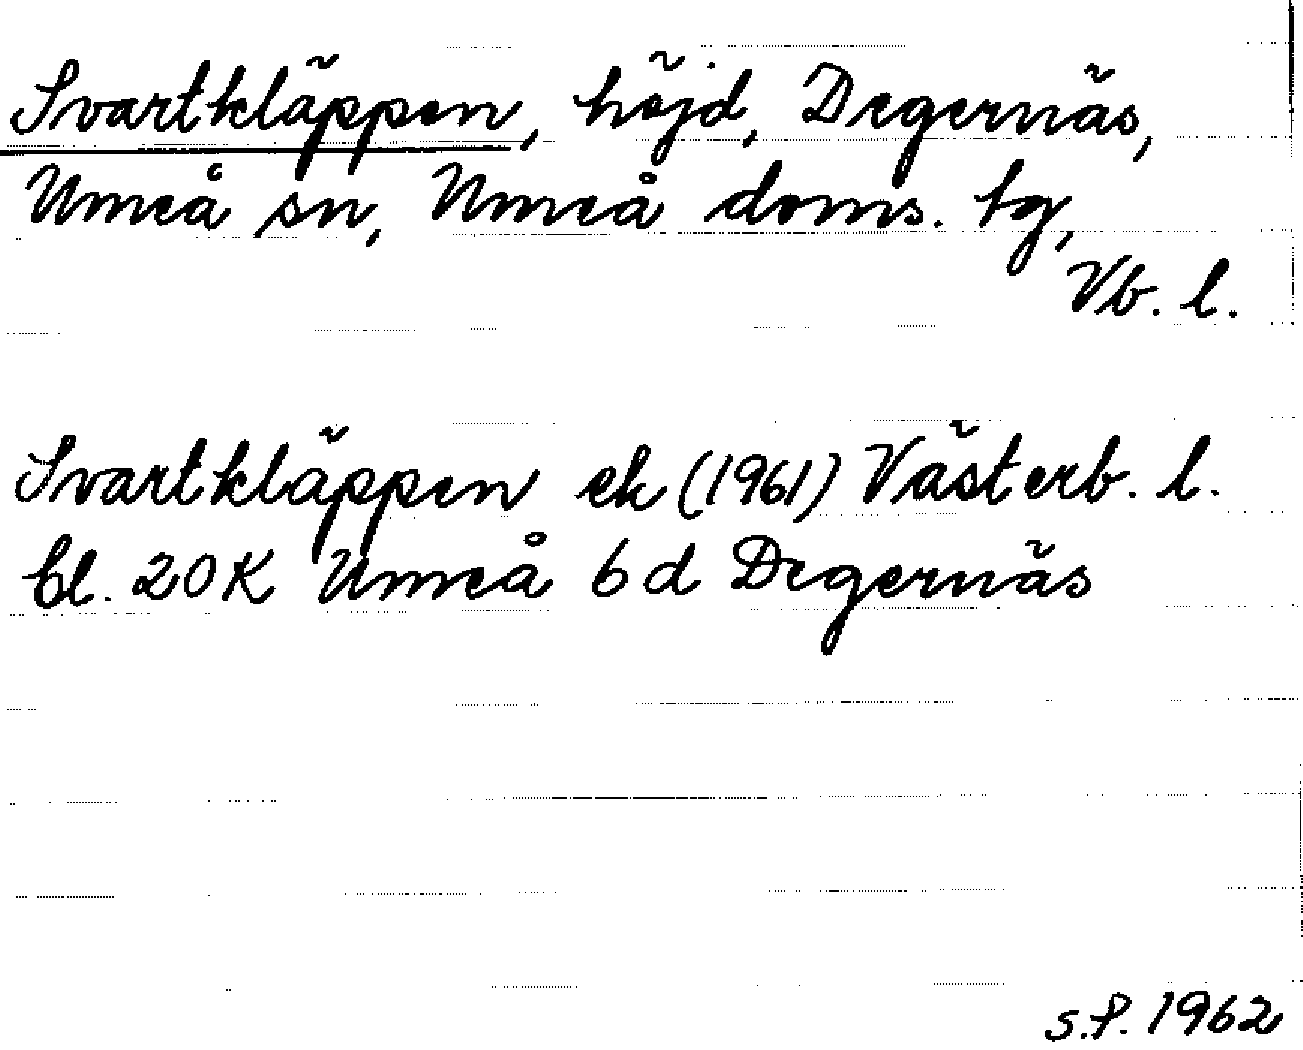 Svartkläppen, höjd, Degernäs,
Umeå sn, Umeå doms. tg,
Vb. l.
Svartkläppen ek (1961) Västerb. l.
bl. 20K Umeå 6d Degernäs
S.P. 1962